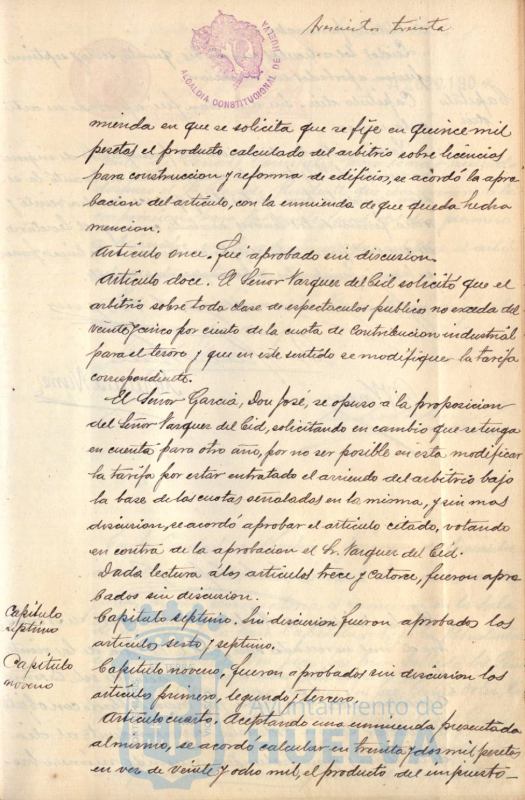 trescientos treinta
ALCALDIA CONSTITUCIONAL DE HUELVA
mienda en que se solicita que se fije en quince mil
pesetas el producto calculado del arbitrio sobre licencias
para construccion y reforma de edificios, se acordó la apro-
bacion del articulo, con la enmienda de que queda hecha
mencion.
Articulo once. Fué aprobado sin discusion.
Articulo doce. El Señor Vazquez del Cid solicitó que el
arbitrio sobre toda clase de espectaculos publico no exceda del
veinte y cinco por ciento de la cuota de Contribucion industrial
para el tesoro y que en este sentido se modifique la tarifa
correspondiente.
El Señor Garcia, Don José, se opuso á la proposicion
del Señor Vazquez del Cid, solicitando en cambio que se tenga
en cuenta para otro año, por no ser posible en esta modificar
la tarifa por estar contratado el arriendo del arbitrio bajo
la base de las cuotas señaladas en la misma, y sin mas
discusion, se acordó aprobar el articulo citado, votando
en contra de la aprobacion el Sr. Vazquez del Cid.
Dada lectura á los articulos trece y catorce, fueron apro-
bados sin discusion.
Capitulo septimo
Capitulo septimo. Sin discusion fueron aprobados los
articulos sesto y septimo.
Capitulo noveno
Capitulo noveno. Fueron aprobados sin discusion los
articulo primero, segundo y tercero.
Articulo cuarto. Aceptando una enmienda presentada
al mismo, se acordó calcular en treinta y dos mil pesetas
en vez de veinte y ocho mil, el producto del impuesto-
Ayuntamiento de
HUELVA